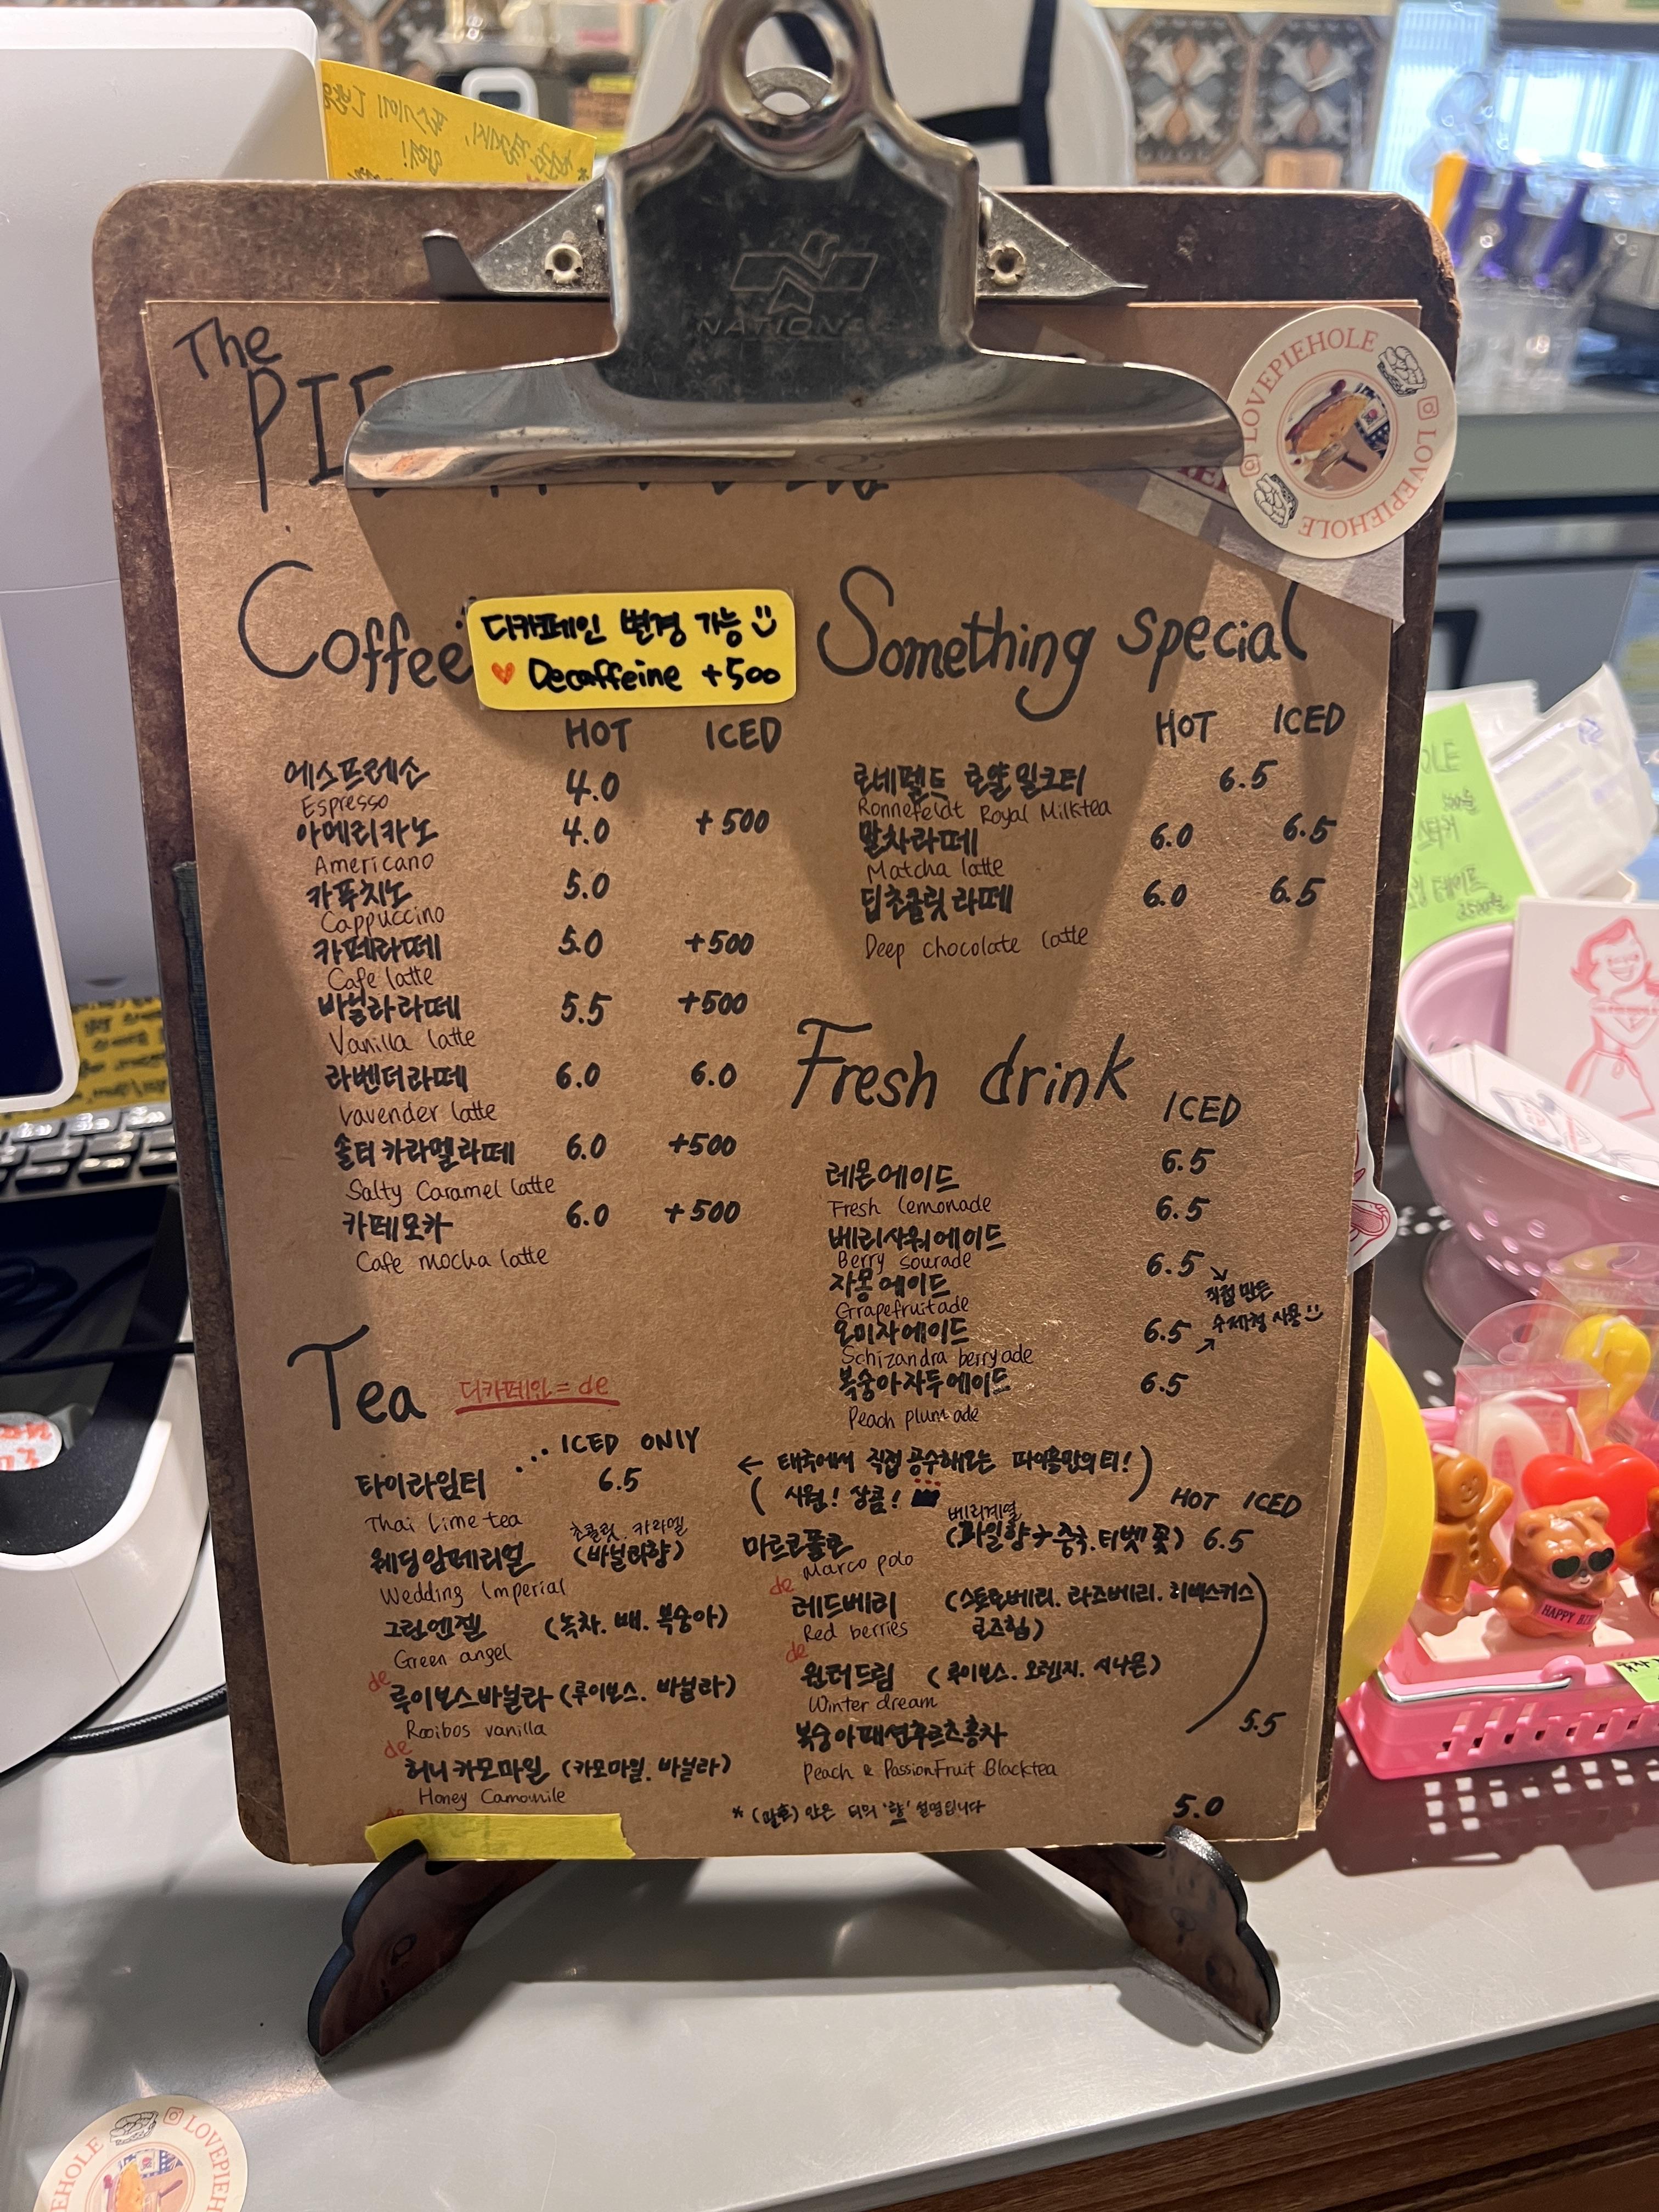 The
PIE
NATIONAL
LOVEPIEHOLE LOVEPIEHOLE
Coffee
디카페인 변경 가능
Decaffeine +500
HOT ICED
에스프레소 4.0
Espresso
아메리카노 4.0 +500
Americano
카푸치노 5.0
Cappuccino
카페라떼 5.0 +500
Cafe latte
바닐라라떼 5.5 +500
Vanilla latte
라벤더라떼 6.0 6.0
Vavender latte
솔티카라멜라떼 6.0 +500
Salty Caramel latte
카페모카 6.0 +500
Cafe mocha latte
Something special
HOT ICED
로네펠트 로얄밀크티 6.5
Ronnefeldt Royal Milktea
말차라떼 6.0 6.5
Matcha latte
딥초콜릿라떼 6.0 6.5
Deep chocolate latte
Fresh drink
ICED
레몬에이드 6.5
Fresh lemonade
베리사워에이드 6.5
Berry sourade
자몽에이드 6.5
Grapefruitade
직접 만든
수제청 사용
오미자에이드 6.5
Schizandra berryade
복숭아자두에이드 6.5
Peach plumade
Tea
디카페인 = de
ICED ONLY
타이라임티 6.5
Thai lime tea
← 태국에서 직접 공수해오는 파이홀만의 티!
시원! 상큼!
HOT ICED
웨딩임페리얼 (바닐라향)
초콜릿. 카라멜
Wedding Imperial
그린엔젤 (녹차. 배. 복숭아)
Green angel
de
루이보스바닐라 (루이보스. 바닐라)
Rooibos vanilla
de
허니카모마일 (카모마일. 바닐라)
Honey Camomile
de
마르코폴로 (과일향+중국.티벳 꽃) 6.5
베리계열
Marco polo
de
레드베리 (스트로베리. 라즈베리. 히비스커스
로즈힙)
Red berries
de
윈터드림 (루이보스. 오렌지. 시나몬)
Winter dream
5.5
복숭아패션후르츠홍차
Peach & PassionFruit Blacktea
5.0
* (괄호) 안은 티의 '향' 설명입니다
HAPPY
LOVEPIEHOLE